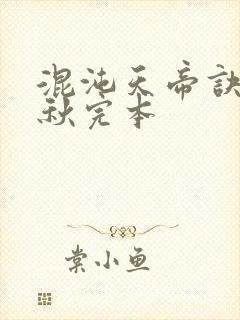 混沌天帝诀
秋完本
棠小鱼